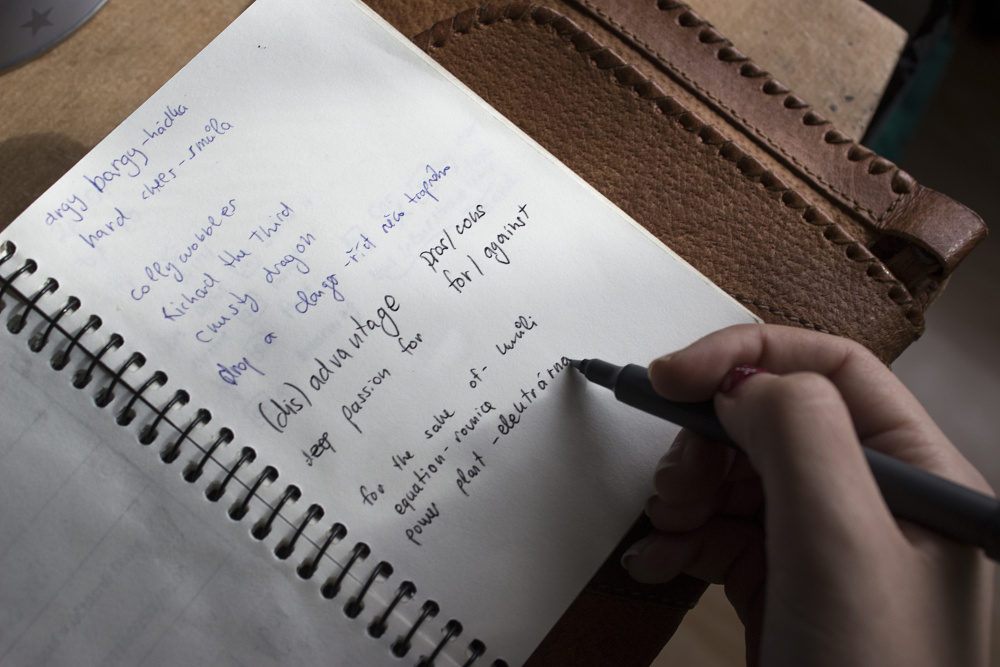 argy bargy - hádka
hard chees - smůla
collywobbler
Richard the Third
crusty dragon
drop a clanger - říct něco trapného
(dis)advantage
pros/cons
for/against
deep passion for
for the sake of - kvůli
equation - rovnice
power plant - elektrárna